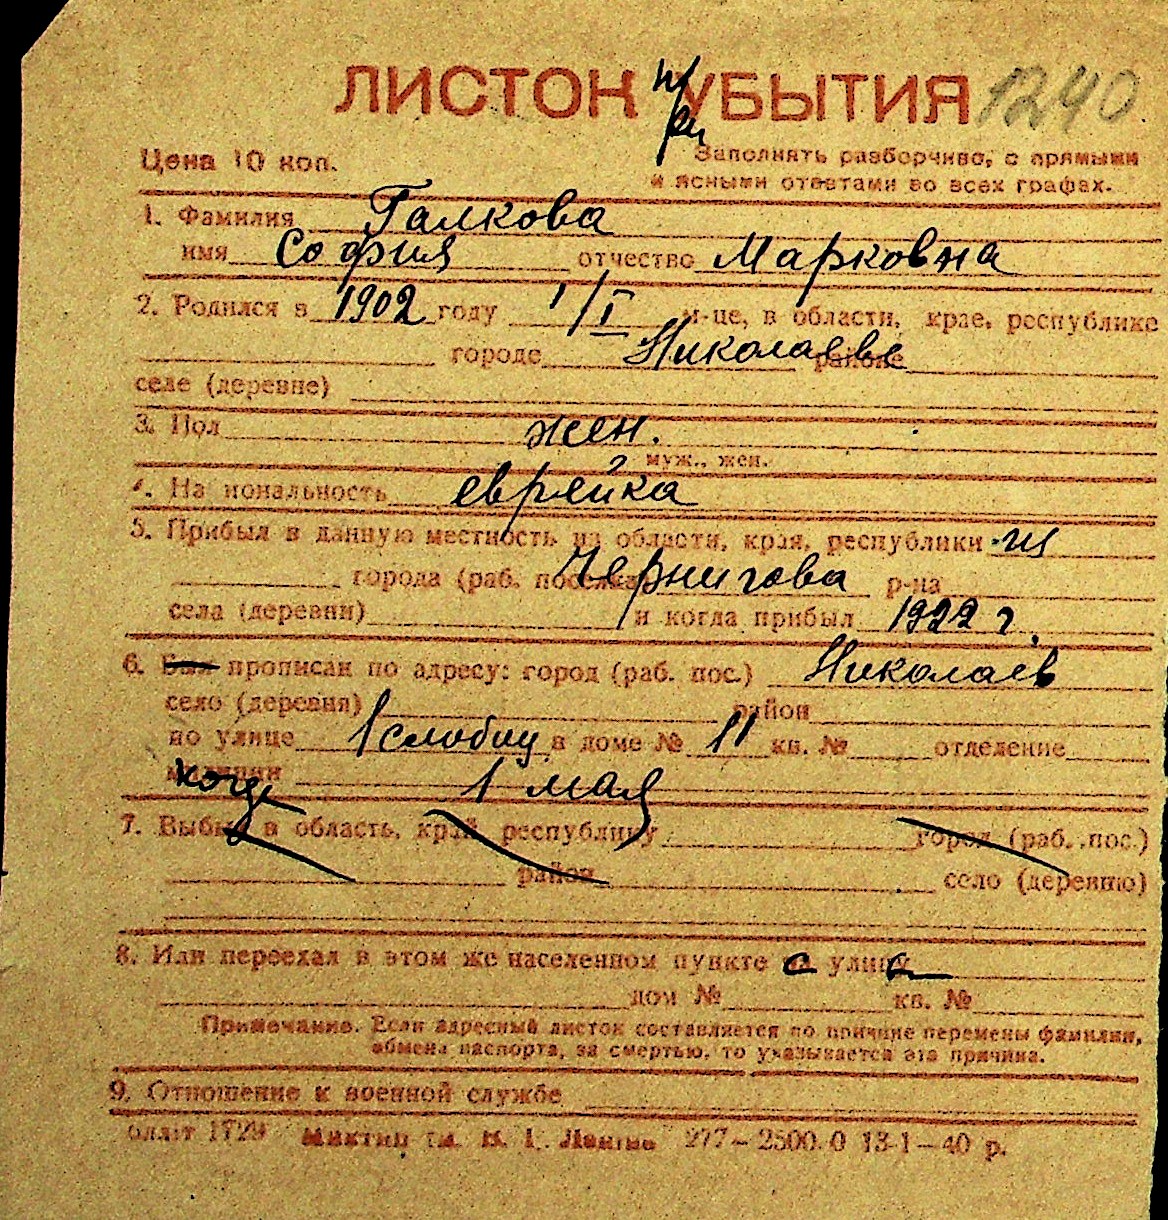 ЛИСТОК УБЫТИЯ 1240
при
Цена 10 коп.
Заполнять разборчиво, с прямыми
и ясными ответами во всех графах.
1. Фамилия Галкова
имя София отчество Марковна
2. Родился в 1902 году 1/I м-це, в области, крае, республике
городе Николаеве районе
селе (деревне)
3. Пол жен.
муж., жен.
4. Национальность еврейка
5. Прибыл в данную местность из области, края, республики из
города (раб. поселка) Чернигова р-на
села (деревни) и когда прибыл 1922 г.
6. Был прописан по адресу: город (раб. пос.) Николаев
село (деревня) район
по улице 1 слобиу в доме № 11 кв. № отделение
милиции когда 1 мая
7. Выбыл в область, край республику город (раб. пос.)
район село (деревню)
8. Или переехал в этом же населенном пункте с улицы
дом № кв. №
Примечание. Если адресный листок составляется по причине перемены фамилии,
обмена паспорта, за смертью, то указывается эта причина.
9. Отношение к военной службе
1729 277-2500.0 13-1-40 р.